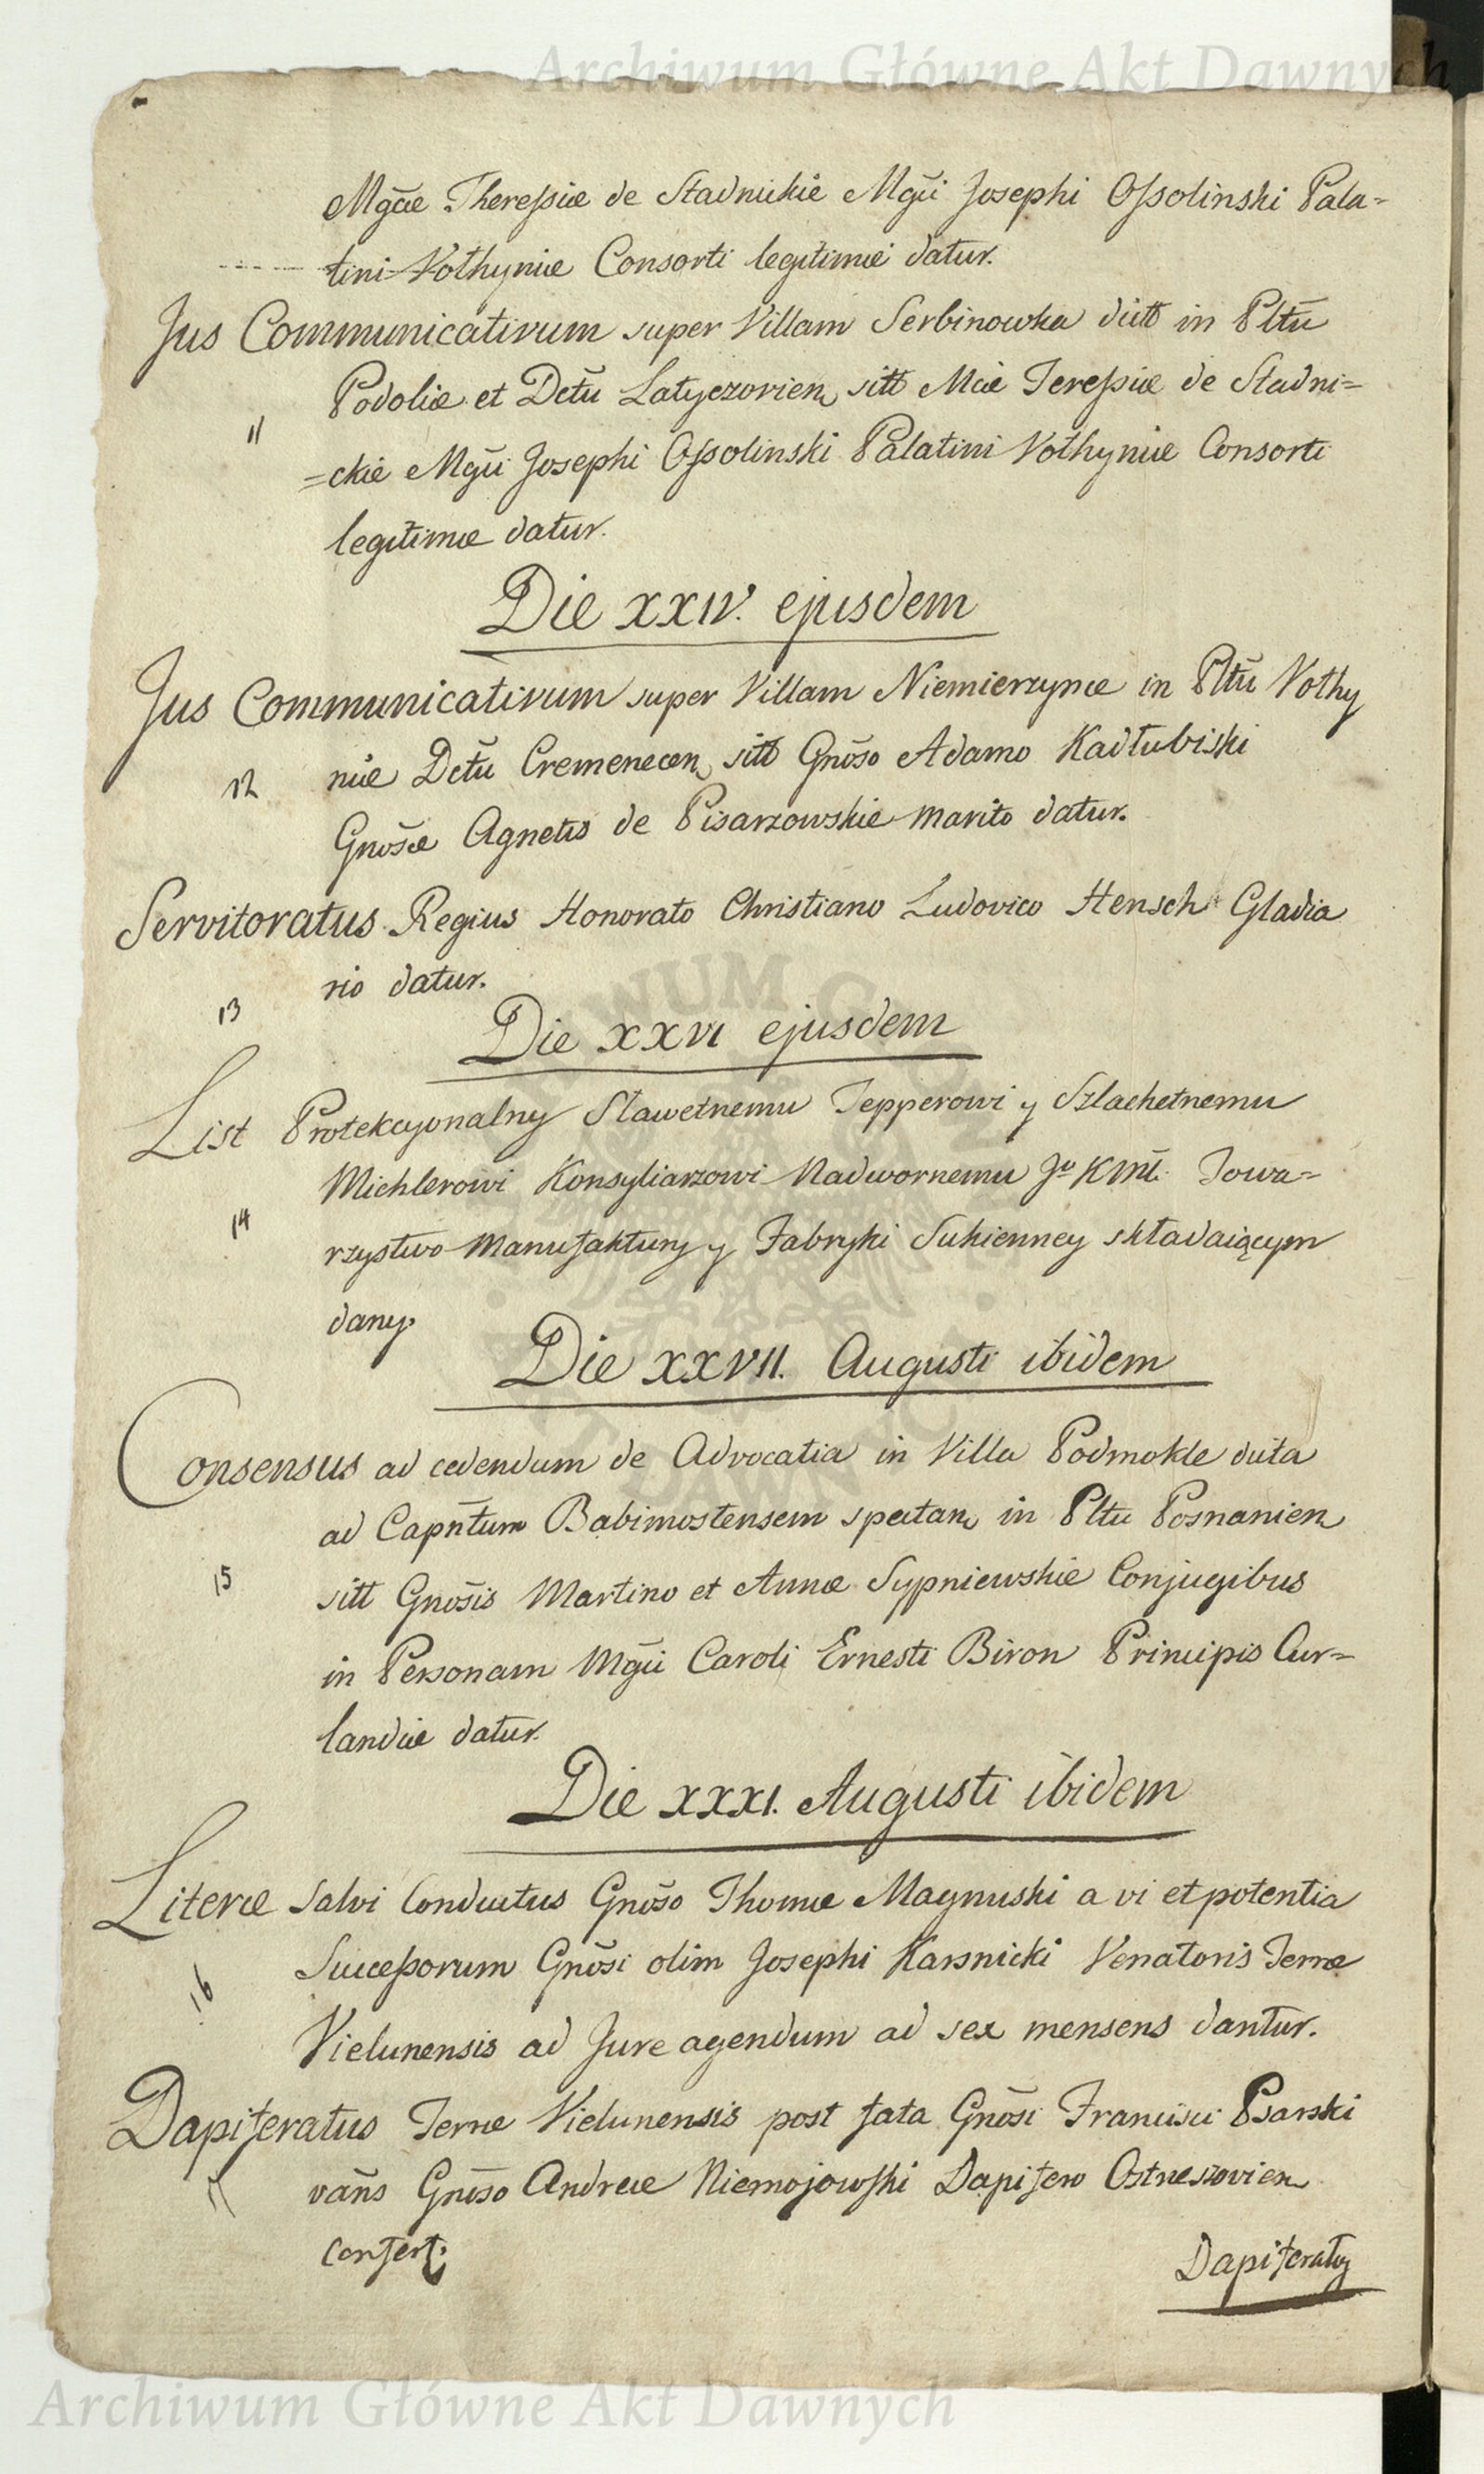 Archiwum Główne Akt Dawnych
Mgãe Theressiæ de Stadnickie Mgũi Josephi Ossolinski Pala=
tini Volhyniæ Consorti legitimæ datur.
Jus Communicativum super Villam Serbinowka dictt in Pltũ
Podoliæ et Dctũ Latyczovien sitt Mcæ Teressiæ de Stadni=
11
=ckie Mgũi Josephi Ossolinski Palatini Volhyniæ Consorti
legitimæ datur.
Die XXIV. ejusdem
Jus Communicativum super Villam Niemierzynce in Pltũ Volhy
12
niæ Dctũ Cremenecen sitt Gnõso Adamo Kadłubiski
Gnõsæ Agnetis de Pisarzowskie marito datur.
Servitoratus Regius Honorato Christiano Ludovico Hensch Gladia
rio datur.
13
Die XXVI ejusdem
List Protekcyonalny Sławetnemu Tepperowi y Szlachetnemu
Michlerowi Konsyliarzowi Nadwornemu Jo KMci Towa=
14
rzystwo Manufaktury y Fabryki Sukienney składaiącym
dany.
Die XXVII. Augusti ibidem
Consensus ad cedendum de Advocatia in Villa Podmokle dicta
ad Capñtum Babimostensem spectan in Pltu Posnanien
15
sitt Gnõsis Martino et Annæ Sypniewskie Conjugibus
in Personam Mgũi Caroli Ernesti Biron Principis Cur=
landiæ datur.
Die XXXI. Augusti ibidem
Literæ Salvi Conductus Gnõso Thomæ Magnuski a vi et potentia
16
Successorum Gnõsi olim Josephi Karsnicki Venatoris Terræ
Vielunensis ad Jure agendum ad sex mensens dantur.
Dapiferatus Terræ Vielunensis post fata Gnõsi Francisci Psarski
17
vañs Gnõso Andreæ Niemojowski Dapifero Ostrzeszovien
confert.
Dapiferatq
Archiwum Główne Akt Dawnych